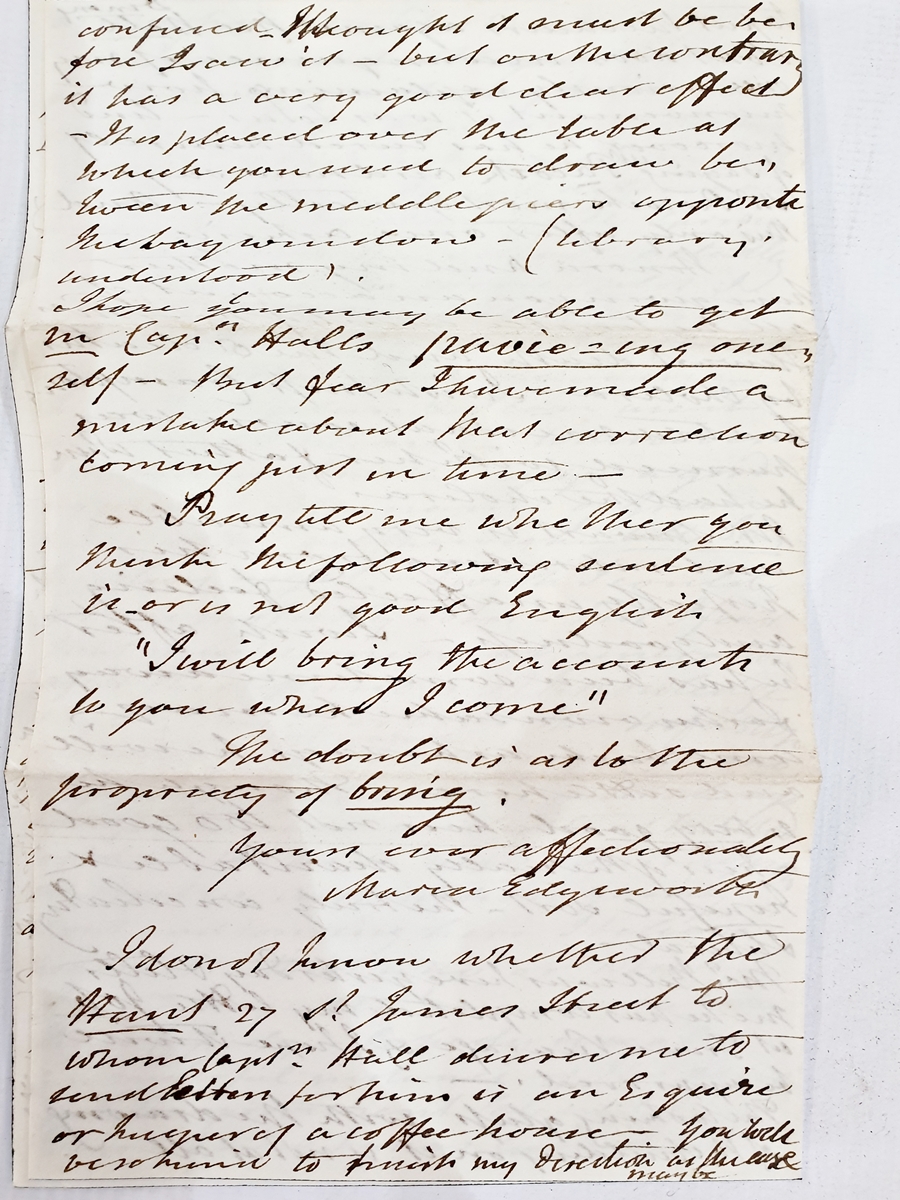 confused - I thought it must be be-
fore I saw it - but on the contrary
it has a very good clear effect
- It is placed over the table at
which you used to draw be-
tween the middle piers opposite
the bay window - (library
understood).
I hope you may be able to get
in Capn. Halls pavie=ing one-
self - but fear I have made a
mistake about that correction
coming just in time -
Pray tell me whether you
think the following sentence
is or is not good English
"I will bring the accounts
to you when I come"
The doubt is as to the
propriety of bring.
Yours ever affectionately
Maria Edgeworth
I do not know whether the
27 St. James Street to
whom Captn. Hall desires me to
send letters for him is an Esquire
or keeper of a coffee house - You will
be so kind to finish my direction as the case
may be